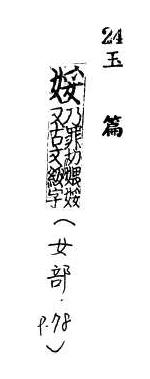 24
玉篇
娞乃罪切㛱娞
又古文綏字
(女部·
P.78)